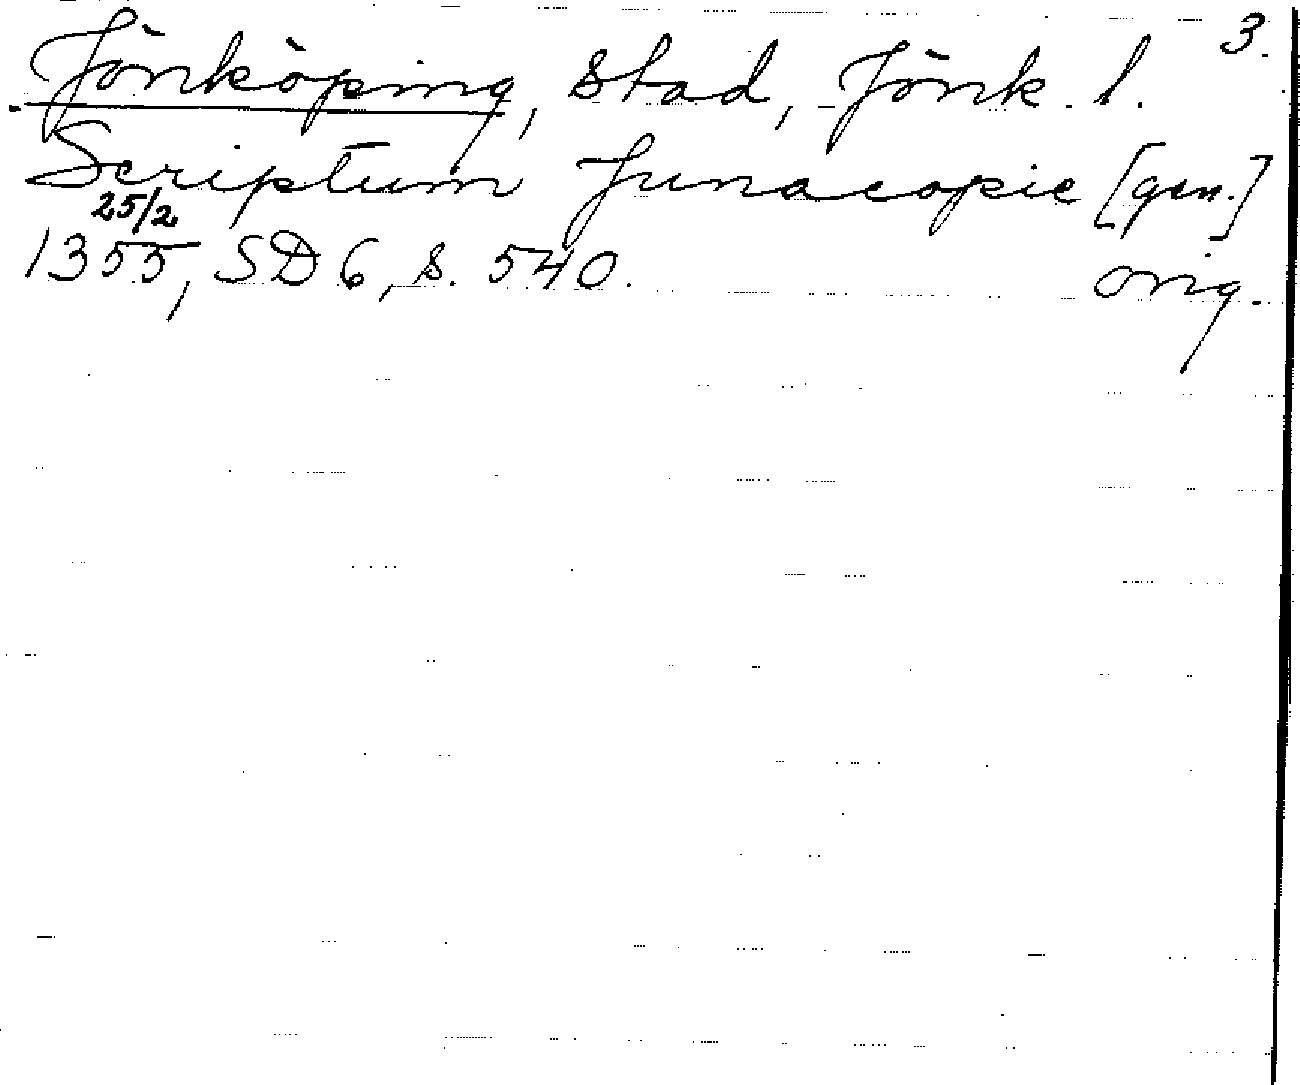 3.
Jönköping, stad, Jönk. l.
Scriptum Junacopie [gen.]
25/2
1355, SD 6, s. 540. orig.